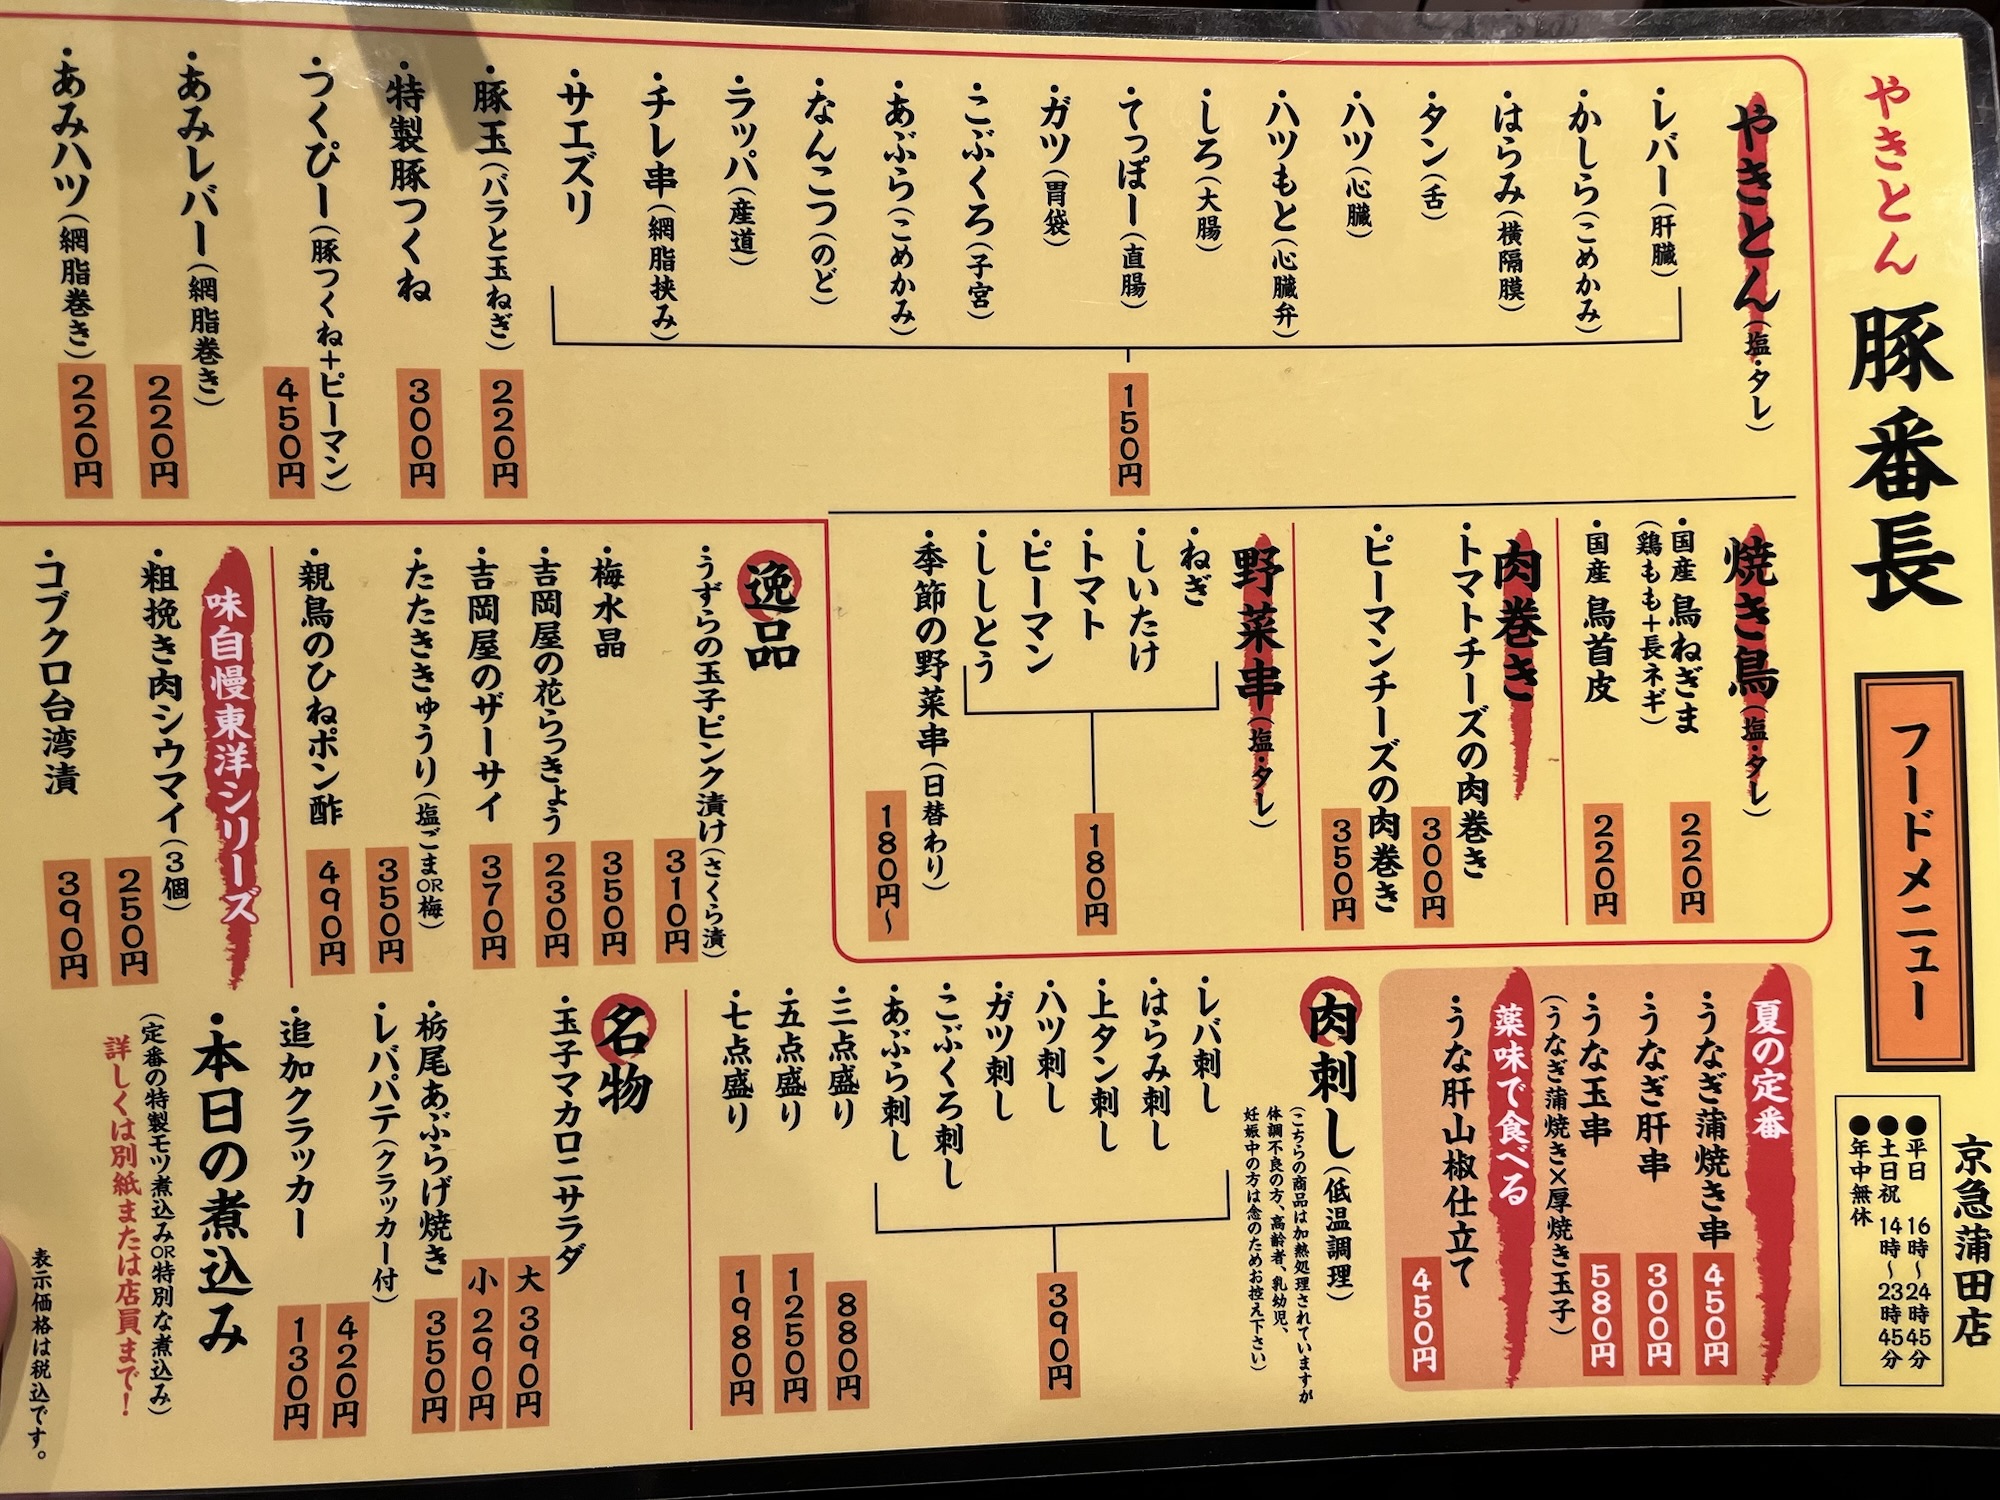 やきとん 豚番長
フードメニュー
京急蒲田店
●平日 16時～24時45分
●土日祝 14時～23時45分
●年中無休
やきとん(塩・タレ)
・レバー(肝臓)
・かしら(こめかみ)
・はらみ(横隔膜)
・タン(舌)
・ハツ(心臓)
・ハツもと(心臓弁)
・しろ(大腸)
・てっぽー(直腸)
・ガツ(胃袋)
・こぶくろ(子宮)
・あぶら(こめかみ)
・なんこつ(のど)
・ラッパ(産道)
・チレ串(網脂挟み)
・サエズリ
150円
・豚玉(バラと玉ねぎ) 220円
・特製豚つくね 300円
・つくぴー(豚つくね+ピーマン) 450円
・あみレバー(網脂巻き) 220円
・あみハツ(網脂巻き) 220円
焼き鳥(塩・タレ)
・国産 鳥ねぎま 220円
(鶏もも+長ネギ)
・国産 鳥首皮 220円
肉巻き
・トマトチーズの肉巻き 300円
・ピーマンチーズの肉巻き 350円
野菜串(塩・タレ)
・ねぎ
・しいたけ
・トマト
・ピーマン
・ししとう
180円
・季節の野菜串(日替わり) 180円～
逸品
・うずらの玉子ピンク漬け(さくら漬) 310円
・梅水晶 350円
・吉岡屋の花らっきょう 230円
・吉岡屋のザーサイ 370円
・たたききゅうり(塩ごまOR梅) 350円
・親鳥のひねポン酢 490円
味自慢東洋シリーズ
・粗挽き肉シウマイ(3個) 250円
・コブクロ台湾漬 390円
夏の定番
・うなぎ蒲焼き串 450円
・うなぎ肝串 300円
・うな玉串 580円
(うなぎ蒲焼き×厚焼き玉子)
薬味で食べる
・うな肝山椒仕立て 450円
肉刺し(低温調理)
(こちらの商品は加熱処理されていますが
体調不良の方、高齢者、乳幼児、
妊娠中の方は念のためお控え下さい)
・レバ刺し
・はらみ刺し
・上タン刺し
・ハツ刺し
・ガツ刺し
・こぶくろ刺し
・あぶら刺し
390円
・三点盛り 880円
・五点盛り 1250円
・七点盛り 1980円
名物
・玉子マカロニサラダ 大 390円
小 290円
・栃尾あぶらげ焼き 350円
・レバパテ(クラッカー付) 420円
・追加クラッカー 130円
・本日の煮込み
(定番の特製モツ煮込みOR特別な煮込み)
詳しくは別紙または店員まで!
表示価格は税込です。